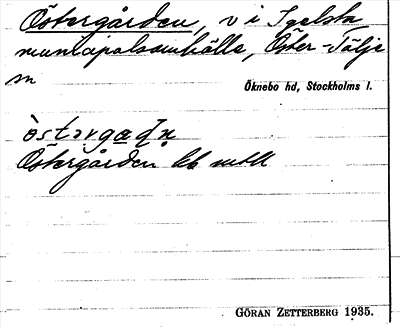 Östergården, v i Igelsta
municipalsamhälle, Öster-Tälje
sn
Öknebo hd, Stockholms l.
östərgaḍṇ
Östergården kb mtll
GÖRAN ZETTERBERG 1935.